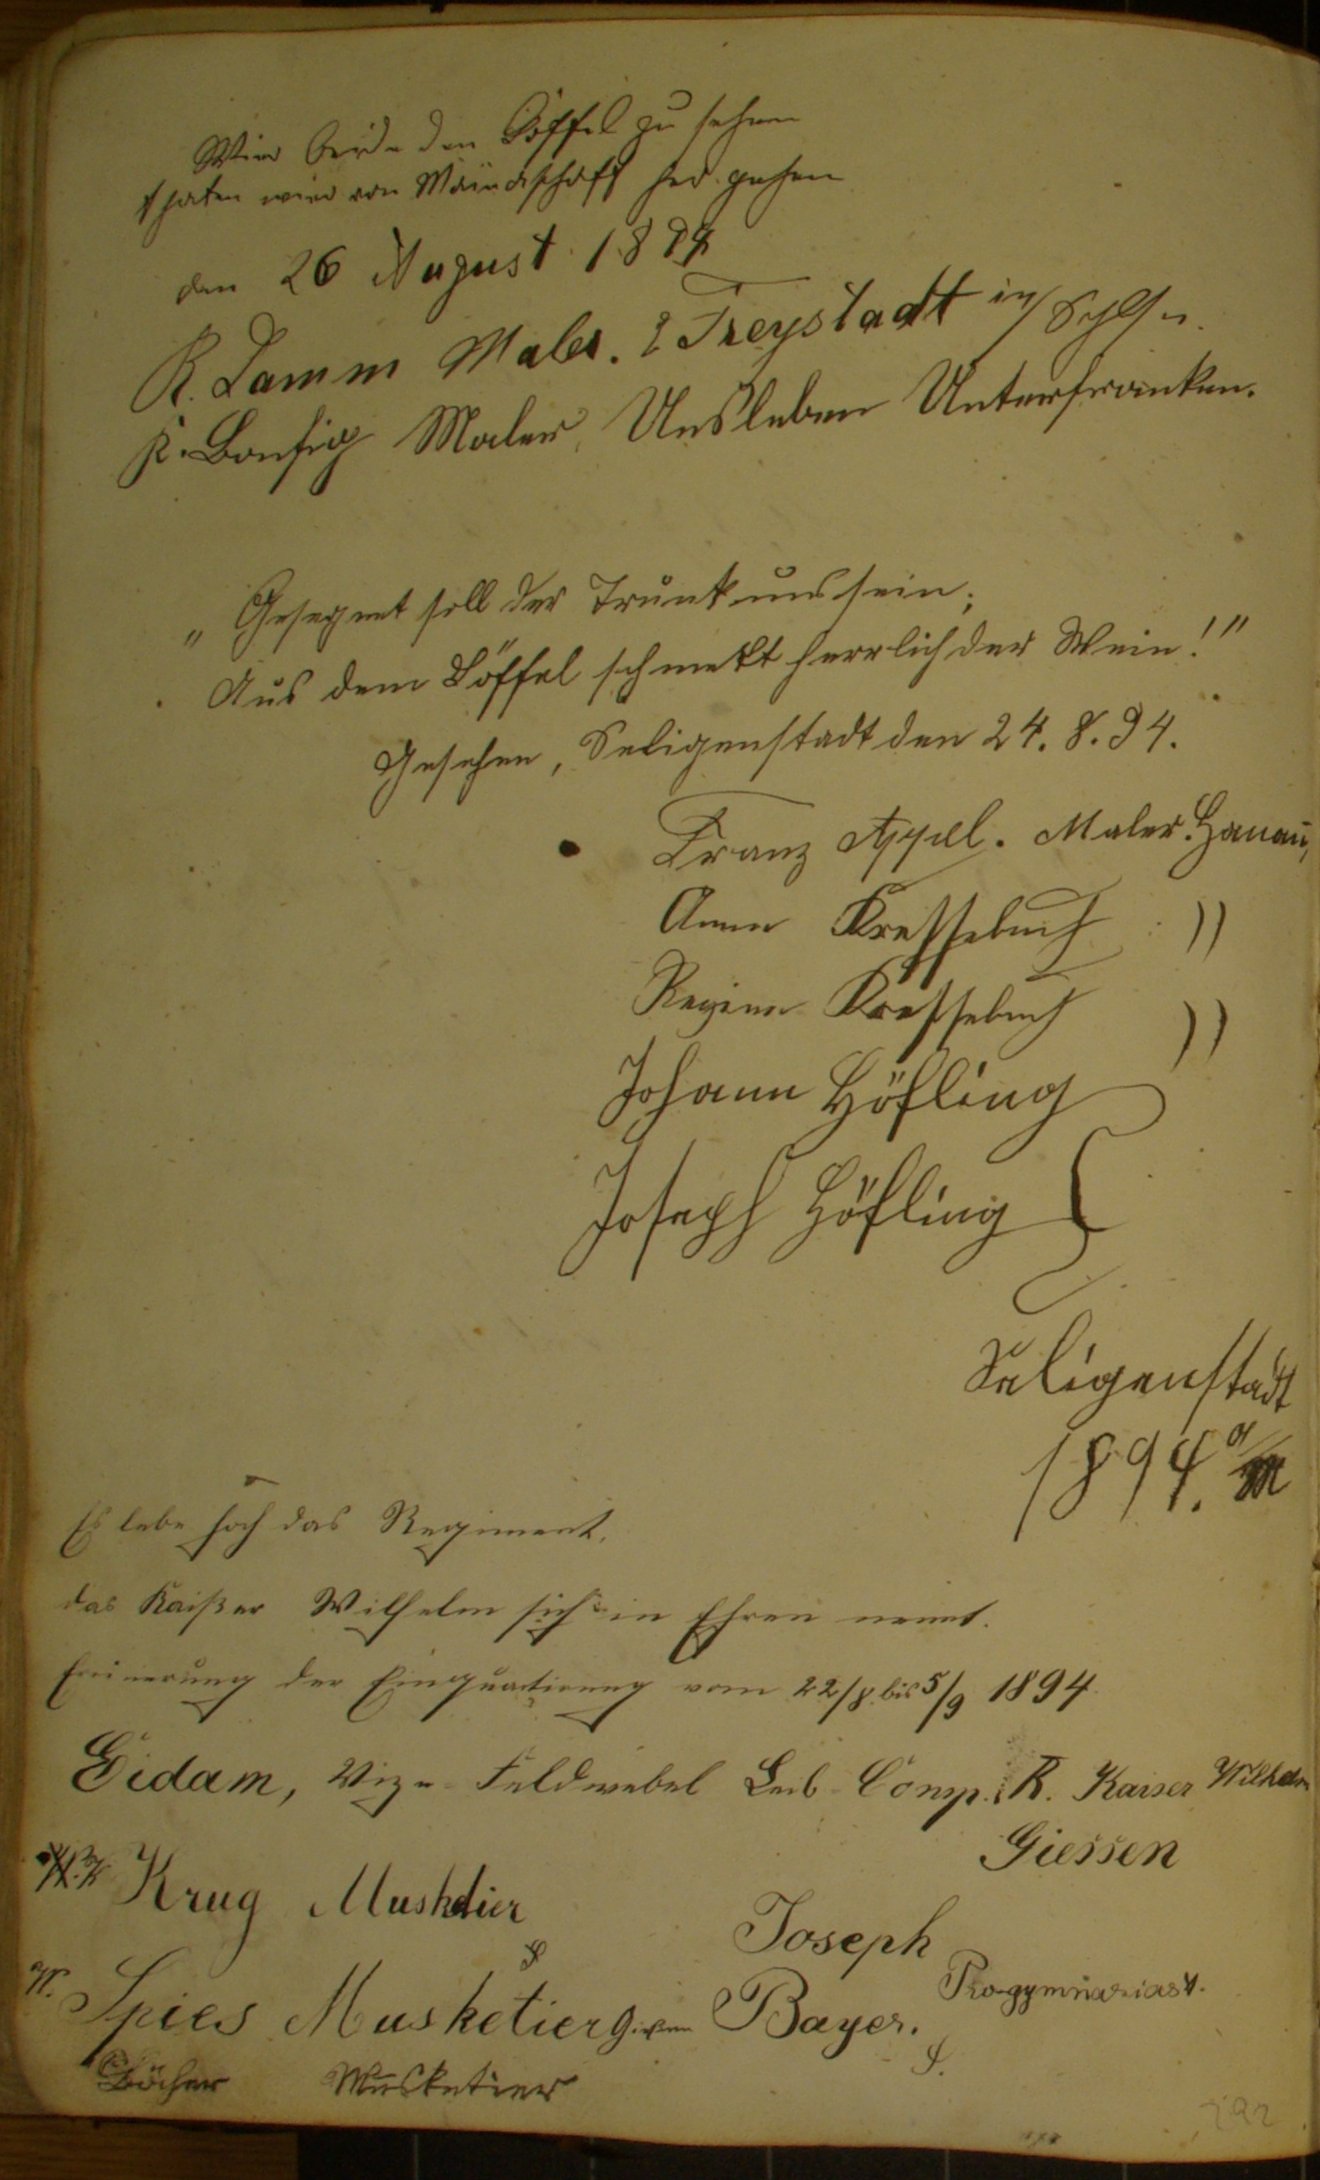 Wier beide den Löffel zu sehen
thaten wier von Mainaschaff her gehen
den 26 August 1894
R. Lamm Maler. Freystadt in Schls.
K. Bonfig Maler, Unsleben Unterfranken.
„Gesegnet soll der Trunk uns sein;
Aus dem Löffel schmekt herrlich der Wein!"
Gesehen, Seligenstadt den 24. 8. 94.
Franz Appel. Maler. Hanau,
Anna Kressebuch "
Regina Kressebuch "
Johann Höfling
Joseph Höfling
Seligenstadt
1894. a/M
Es lebe hoch das Regiment,
das Kaißer Wilhelm sich in Ehren nennt.
Erinerung der Einquartirung vom 22/8. bis 5/9 1894
Eidam, Vize-Feldwebel Leib-Comp. R. Kaiser Wilhelm
Giessen
Krug Musketier
Joseph
Progymnasiast.
W. Spies Musketier Bayer.
Löcher Musketier
292